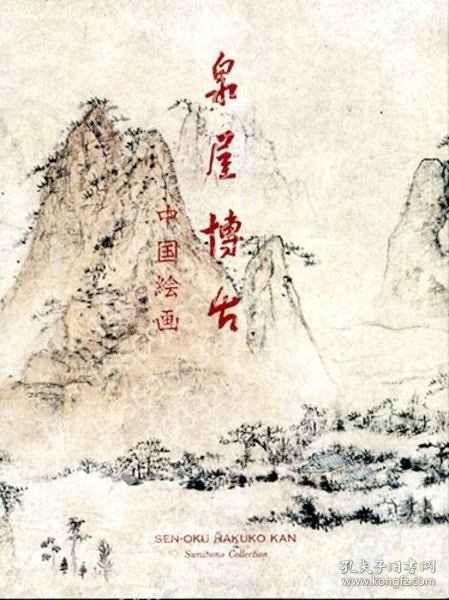 泉屋博古
中国絵画
SEN-OKU HAKUKO KAN
Sumitomo Collection
孔夫子旧书网
www.kongfz.com